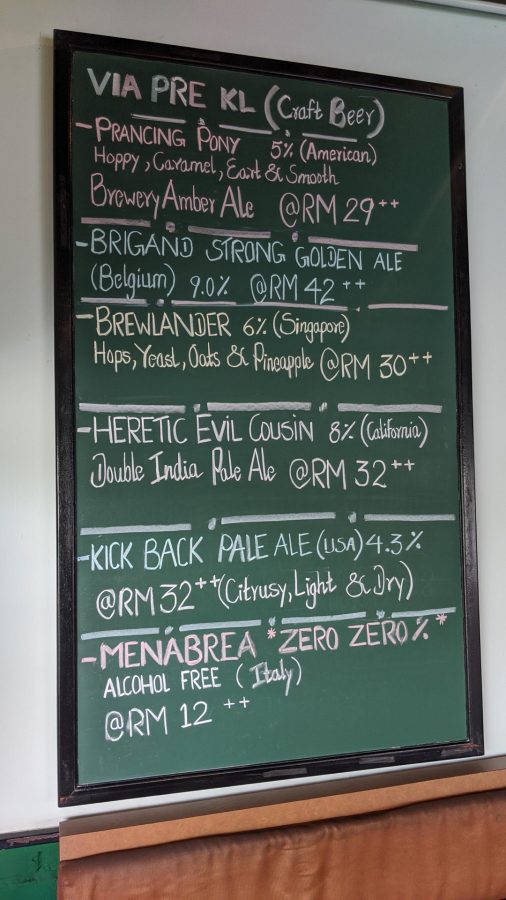 VIA PRE KL (Craft Beer)
- PRANCING PONY 5% (American)
Hoppy, Caramel, East & Smooth
Brewery Amber Ale @RM 29++
- BRIGAND STRONG GOLDEN ALE
(Belgium) 9.0% @RM 42++
- BREWLANDER 6% (Singapore)
Hops, Yeast, Oats & Pineapple @RM 30++
- HERETIC EVIL COUSIN 8% (California)
Double India Pale Ale @RM 32++
- KICK BACK PALE ALE (USA) 4.3%
@RM 32++ (Citrusy, Light & Dry)
- MENABREA *ZERO ZERO%*
ALCOHOL FREE (Italy)
@RM 12++